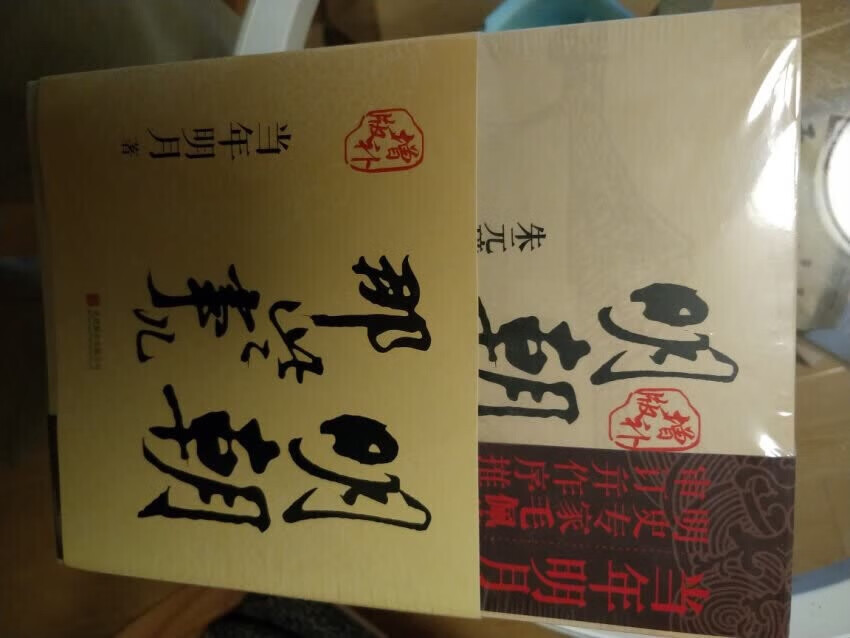 明朝
那些
事儿
增补版
当年明月 著
明朝
增补版
朱元
审订并作序推
明史专家毛佩
当年明月